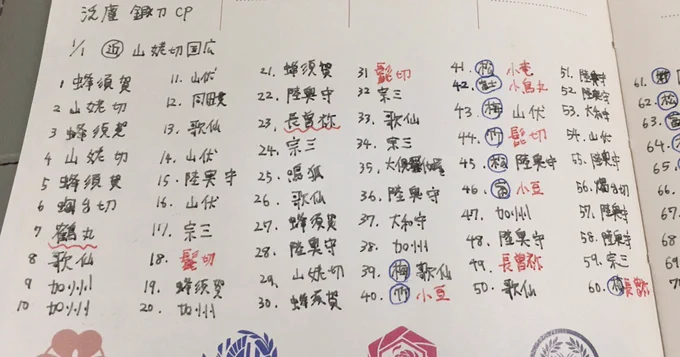 洗塵 鍛刀 CP
1/1 近 山姥切国広
1 蜂須賀
2 山姥切
3 蜂須賀
4 山姥切
5 蜂須賀
6 燭台切
7 鶴丸
8 歌仙
9 加州
10 加州
11. 山伏
12. 同田貫
13. 歌仙
14. 山伏
15. 陸奥守
16. 山伏
17. 宗三
18. 髭切
19. 蜂須賀
20. 加州
21. 蜂須賀
22. 陸奥守
23. 長曽祢
24. 宗三
25. 鳴狐
26. 歌仙
27. 蜂須賀
28. 陸奥守
29. 山姥切
30. 蜂須賀
31 髭切
32. 宗三
33. 歌仙
34. 宗三
35. 大倶羅伽羅
36. 陸奥守
37. 大和守
38. 加州
39. 梅 歌仙
40. 竹 小豆
41. 松 小竜
42. 富士 小烏丸
43. 梅 山伏
44. 竹 髭切
45. 松 陸奥守
46. 富 小豆
47. 加州
48. 陸奥守
49. 長曽祢
50. 歌仙
51. 陸奥守
52. 陸奥守
53. 大和守
54. 山伏
55. 陸奥守
56. 燭台切
57. 陸奥守
58. 陸奥守
59. 宗三
60. 松 長曽祢
61.
62. 松
63. 富
64.
65
66.
67
68.
69.